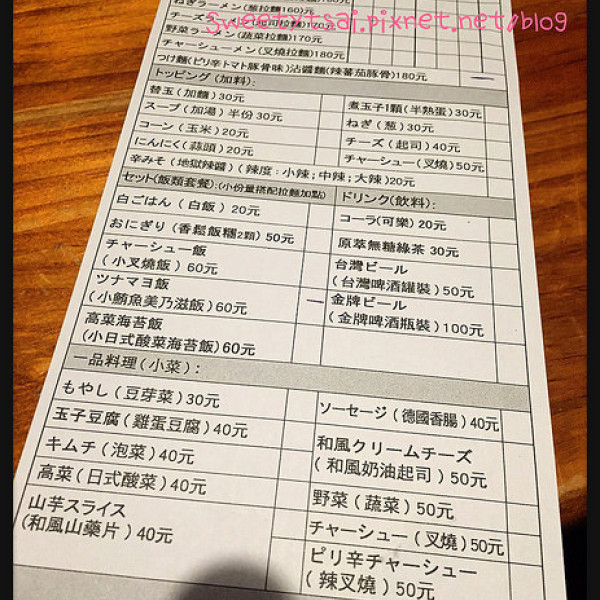 ねぎラーメン(葱拉麵)160元
sweetxtsai.pixnet.net/blog
野菜ラーメン(蔬菜拉麵)170元
チャーシューメン(叉燒拉麵)180元
つけ麵(ピリ辛トマト豚骨味)沾醬麵(辣蕃茄豚骨)180元
トッピング (加料):
替玉(加麵)30元
煮玉子1顆(半熟蛋)30元
スープ(加湯)半份30元
ねぎ(葱)30元
コーン(玉米)20元
チーズ(起司)40元
にんにく(蒜頭)20元
チャーシュー(叉燒)50元
辛みそ(地獄辣醬)(辣度:小辣;中辣;大辣)20元
セット(飯類套餐):(小份量搭配拉麵加點)
ドリンク(飲料):
白ごはん(白飯)20元
コーラ(可樂)20元
おにぎり(香鬆飯糰2顆)50元
原萃無糖綠茶 30元
チャーシュー飯
(小叉燒飯)60元
台灣ビール
(台灣啤酒罐裝)50元
ツナマヨ飯
(小鮪魚美乃滋飯)60元
金牌ビール
(金牌啤酒瓶裝)100元
高菜海苔飯
(小日式酸菜海苔飯)60元
一品料理(小菜):
もやし(豆芽菜)30元
ソーセージ(德國香腸)40元
玉子豆腐(雞蛋豆腐)40元
和風クリームチーズ
(和風奶油起司)50元
キムチ(泡菜)40元
高菜(日式酸菜)40元
野菜(蔬菜)50元
山芋スライス
(和風山藥片)40元
チャーシュー(叉燒)50元
ピリ辛チャーシュー
(辣叉燒)50元